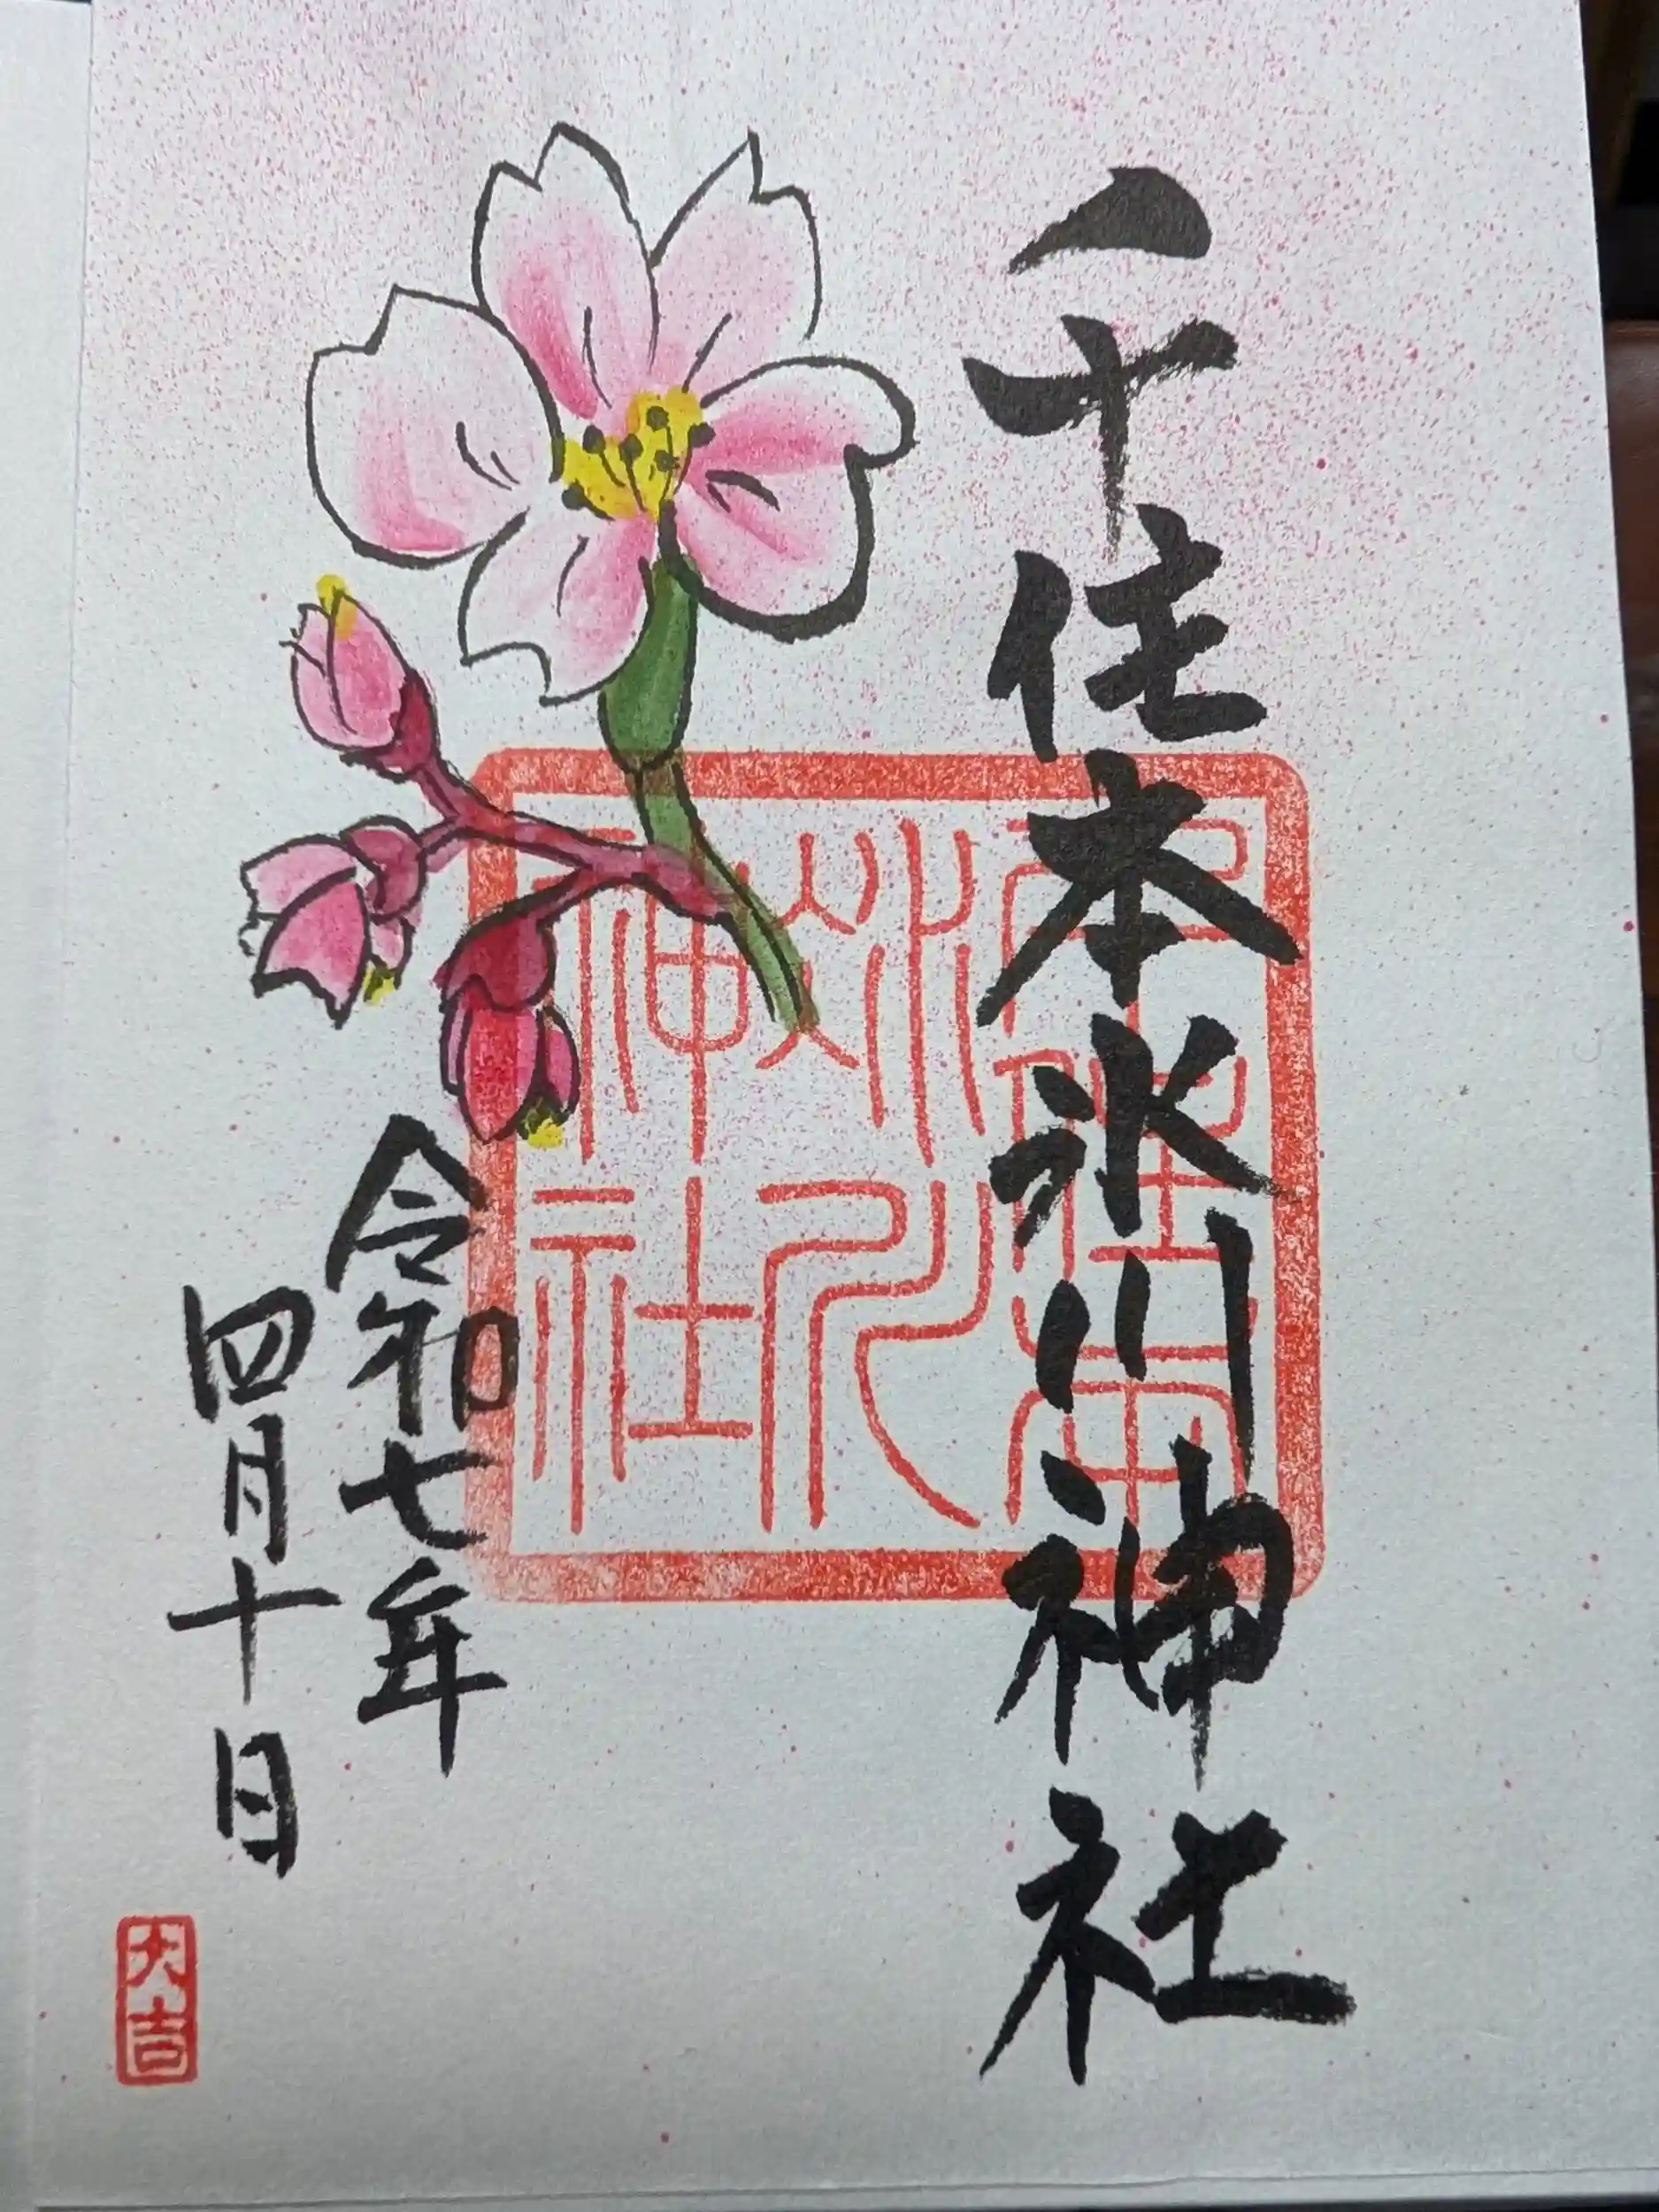 千住本氷川神社
令和七年
四月十日
氷川
神社
大吉